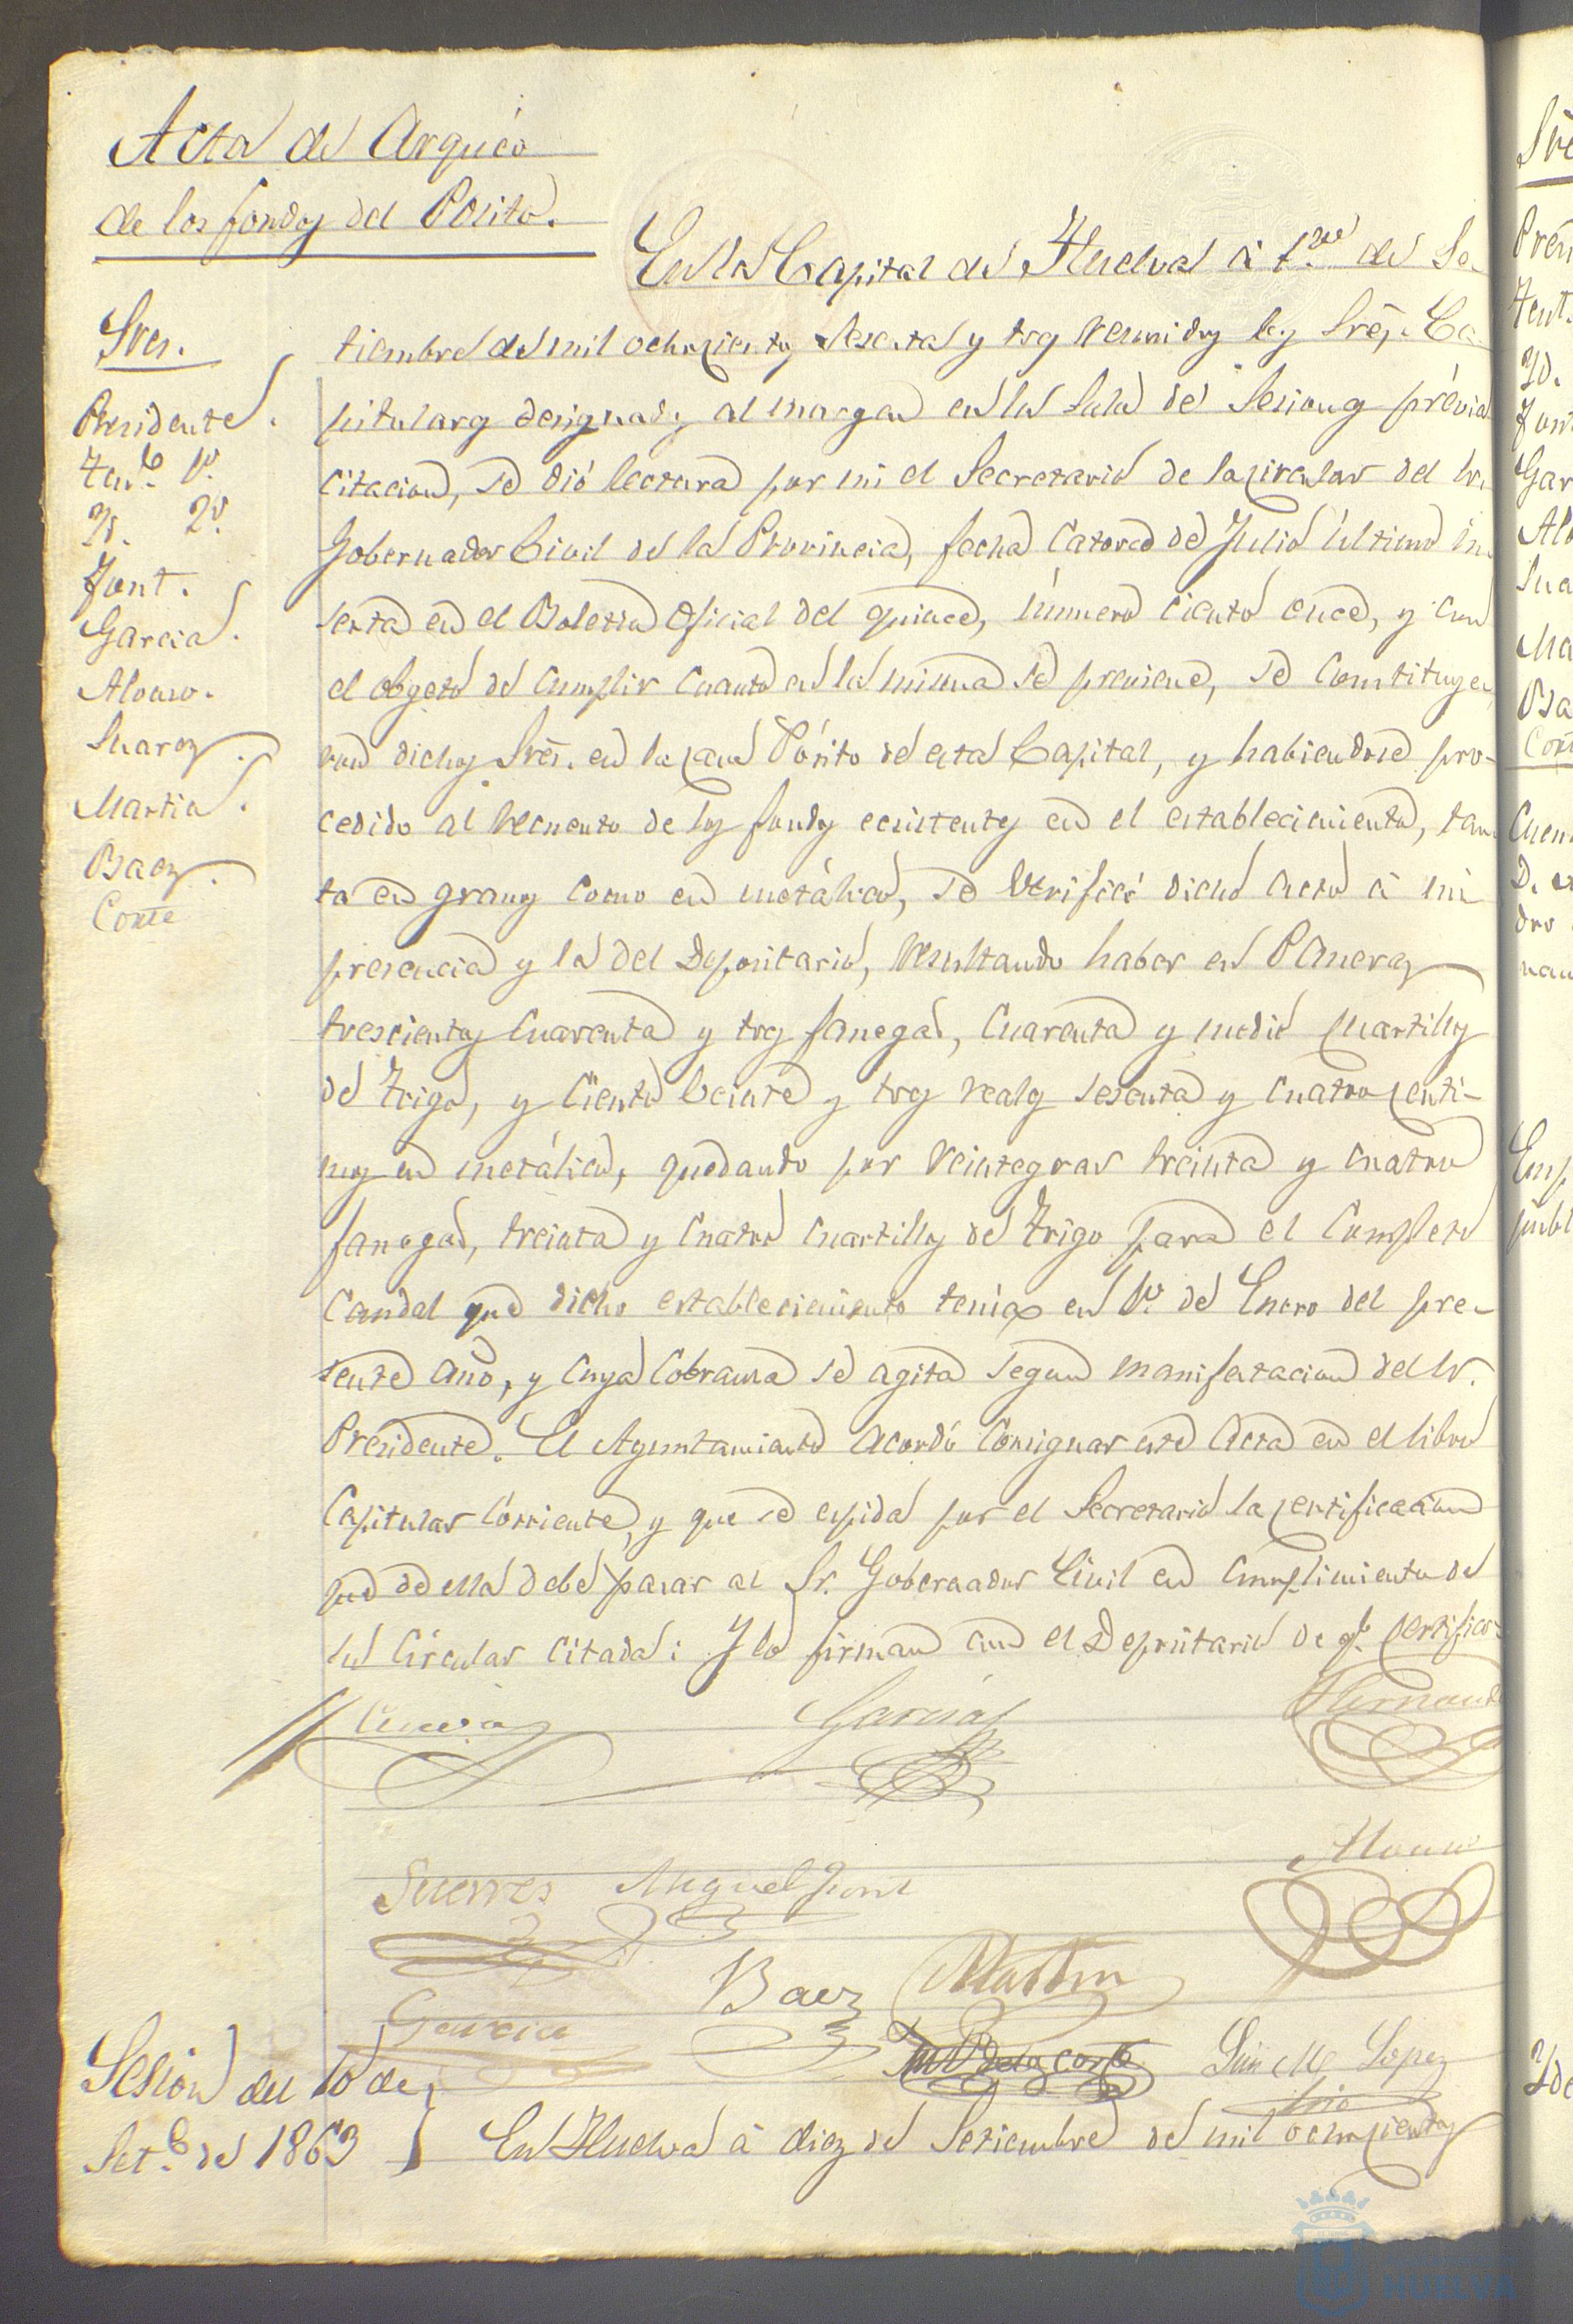 Acta de Arquéo
de los fondos del Pósito.
En la Capital de Huelva á 1.º de Se-
tiembre de mil ochocientos sesenta y tres reunidos los Sres. Ca-
pitulares designados al margen en la Sala de Sesiones prévia
citacion, se dió lectura por mi el Secretario de la circular del Sr.
Gobernador Civil de la Provincia, fecha Catorce de Julio último in-
serta en el Boletin Oficial del quince, número ciento once, y con
el objeto de cumplir cuanto en la misma se previene, se constituye-
ron dichos Sres. en la casa Pósito de esta Capital, y habiendose pro-
cedido al recuento de los fondos ecsistentes en el establecimiento, tan-
to en granos como en metálico, se verificó dicho acto á mi
presencia y la del Depositario, resultando haber en Paneras
trescientas cuarenta y tres fanegas, cuarenta y medio cuartillos
de trigo, y ciento veinte y tres reales sesenta y cuatro centi-
mos en metálico, quedando por reintegrar treinta y cuatro
fanegas, treinta y cuatro cuartillos de trigo para el completo
Caudal que dicho establecimiento tenia en 1.º de Enero del pre-
sente año, y cuya cobranza se agita segun manifestacion del Sr.
Presidente. El Ayuntamiento acordó consignar este acta en el libro
Capitular corriente, y que se espida por el Secretario la certificacion
que de ella debe pasar al Sr. Gobernador Civil en cumplimiento de
la Circular citada: Y lo firman con el Depositario de q.e certifico=
Sres.
Presidente.
Ten.e 1.º
Yd. 2.º
Font.
Garcia.
Alonso.
Suarez.
Martin.
Baez.
Conte
Garcia
Hernand
Miguel Font
Alonso
Garcia
Baez
Martin
Luis M.ª Lopez
Srio
Sesion del 10 de
Set.e de 1863
En Huelva á diez de Setiembre de mil ochocientos
Sre
Pres
Tent.
Yd.
Font
Gar
Alo
Sua
Ma
Ba
Cont
Cuen
D.
dro
nan
Emp
publ
Yde
HUELVA